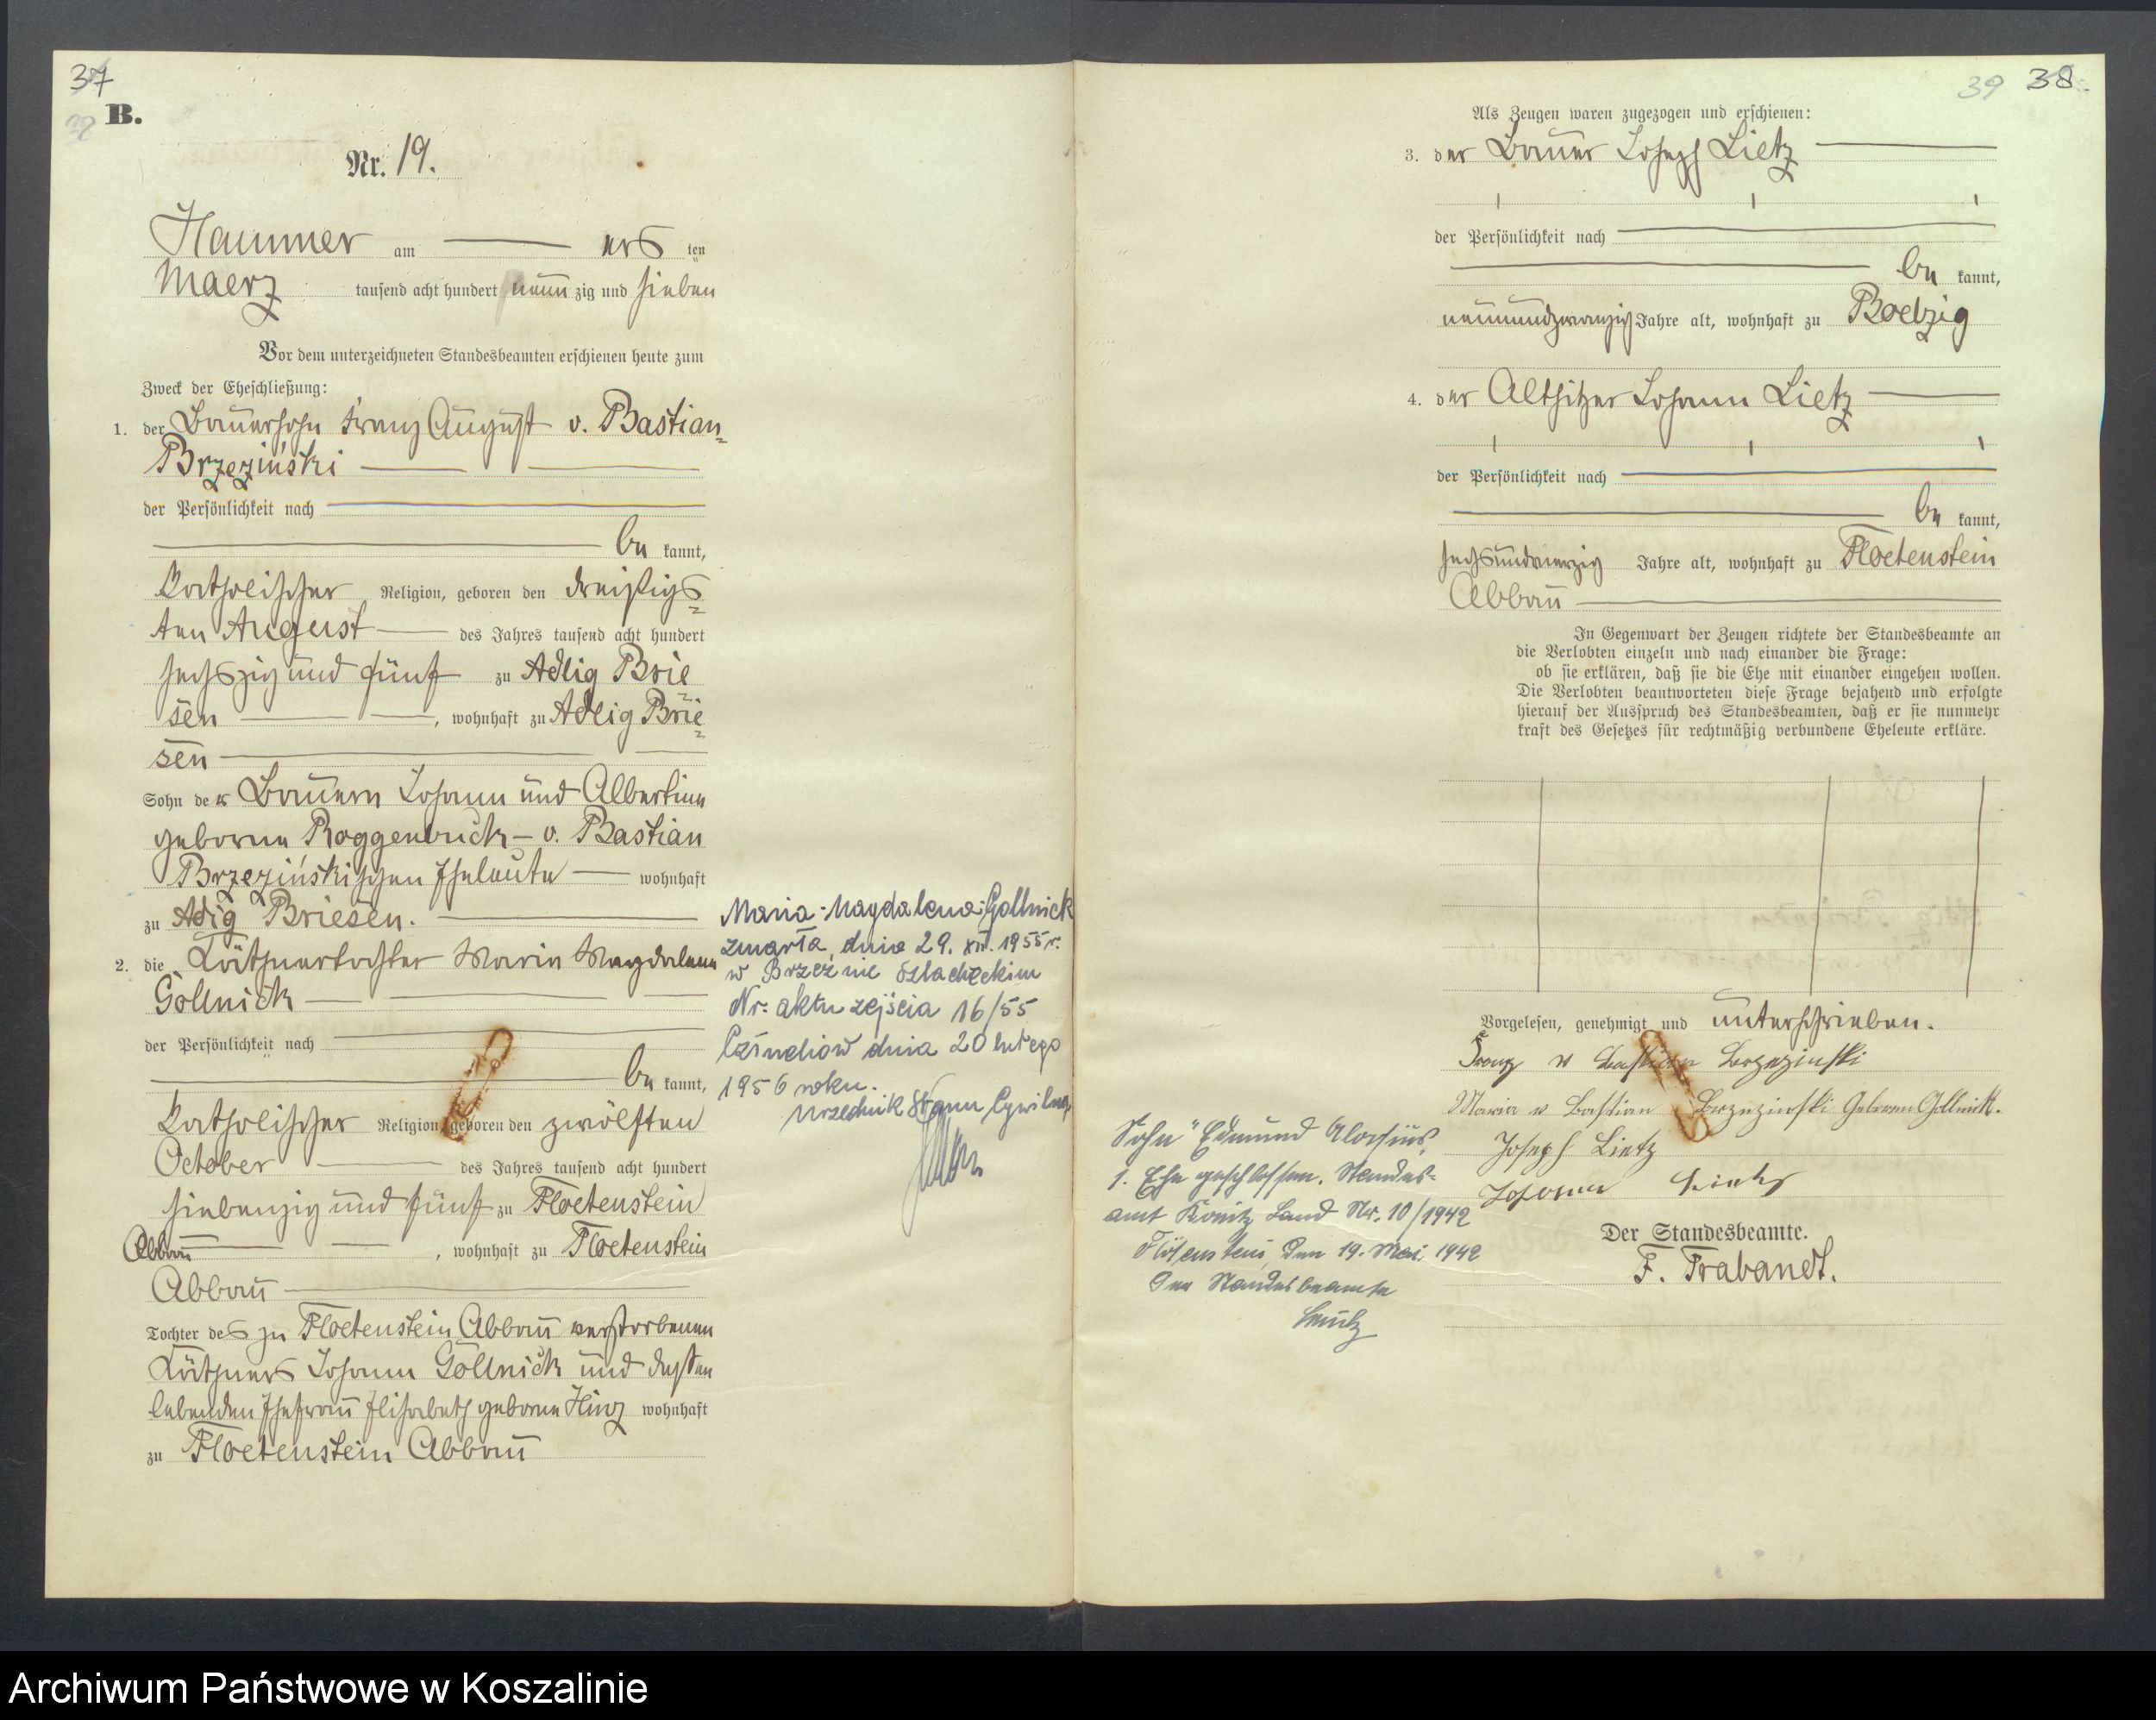 37
B.
Nr. 19.
Hammer am ers ten
Maerz tausend acht hundert neun zig und sieben
Vor dem unterzeichneten Standesbeamten erschienen heute zum
Zweck der Eheschließung:
1. der Bauersohn Franz August v. Bastian
Brzeziński
der Persönlichkeit nach
be kannt,
katholischer Religion, geboren den dreißigs
ten August des Jahres tausend acht hundert
sechszig und fünf zu Adlig Brie
sen, wohnhaft zu Adlig Brie
sen
Sohn der Bauern Johann und Albertine
geborne Roggenbuck - v. Bastian
Brzezińskischen Eheleute wohnhaft
zu Adlig Briesen.
2. die Käthnertochter Maria Magdalena
Gollnick
der Persönlichkeit nach
be kannt,
katholischer Religion, geboren den zwölften
October des Jahres tausend acht hundert
siebenzig und fünf zu Floetenstein
Abbau, wohnhaft zu Floetenstein
Abbau
Tochter des zu Floetenstein Abbau verstorbenen
Käthners Johann Gollnick und dessen
lebenden Ehefrau Elisabeth geborne Hinz wohnhaft
zu Floetenstein Abbau
Maria-Magdalena Gollnick
zmarła dnia 29. XII. 1955 r.
w Brzeźnie Szlacheckim
Nr. aktu zejścia 16/55
Człuchów dnia 20 lutego
1956 roku.
Urzednik Stanu Cywilnego
39 38.
Als Zeugen waren zugezogen und erschienen:
3. der Bauer Joseph Lietz
der Persönlichkeit nach
be kannt,
neunundzwanzig Jahre alt, wohnhaft zu Boelzig
4. der Altsitzer Johann Lietz
der Persönlichkeit nach
be kannt,
sechsundvierzig Jahre alt, wohnhaft zu Floetenstein
Abbau
In Gegenwart der Zeugen richtete der Standesbeamte an
die Verlobten einzeln und nach einander die Frage:
ob sie erklären, daß sie die Ehe mit einander eingehen wollen.
Die Verlobten beantworteten diese Frage bejahend und erfolgte
hierauf der Ausspruch des Standesbeamten, daß er sie nunmehr
kraft des Gesetzes für rechtmäßig verbundene Eheleute erkläre.
Vorgelesen, genehmigt und unterschrieben.
Franz v Bastian Brzezinski
Maria v Bastian Brzezinski Geboren Gollnick.
Joseph Lietz
Johann Lietz
Der Standesbeamte.
F. Trabandt.
Sohn "Edmund Aloysius"
1. Ehe geschlossen. Standes-
amt Konitz Land Nr. 10/1942
Flötenstein, den 19. Mai 1942
Der Standesbeamte
Archiwum Państwowe w Koszalinie